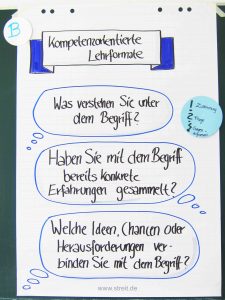 B
Kompetenzorientierte
Lehrformate
Was verstehen Sie unter
dem Begriff?
Haben Sie mit dem Begriff
bereits konkrete
Erfahrungen gesammelt?
Welche Ideen, Chancen oder
Herausforderungen ver-
binden Sie mit dem Begriff?
www.streit.de